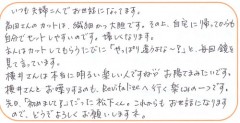 いつも夫婦二人でお世話になってます。
高田さんのカットは、繊細かつ大胆です。その上、自宅に帰ってからも
自分でセットしやすいのです。嬉しくなります。
主人はカットしてもらうたびに「やっぱり違うなー?」と、毎回鏡を
見て言っています。
横井さんは本当に明るい楽しい人ですね お陽さまみたいです。
横井さんとお喋りするのも、Revitalizeへ行く楽しみの一つです。
先日、「初めまして」だった松下くん。これからもお世話になります
ので、どうぞよろしくお願いします。